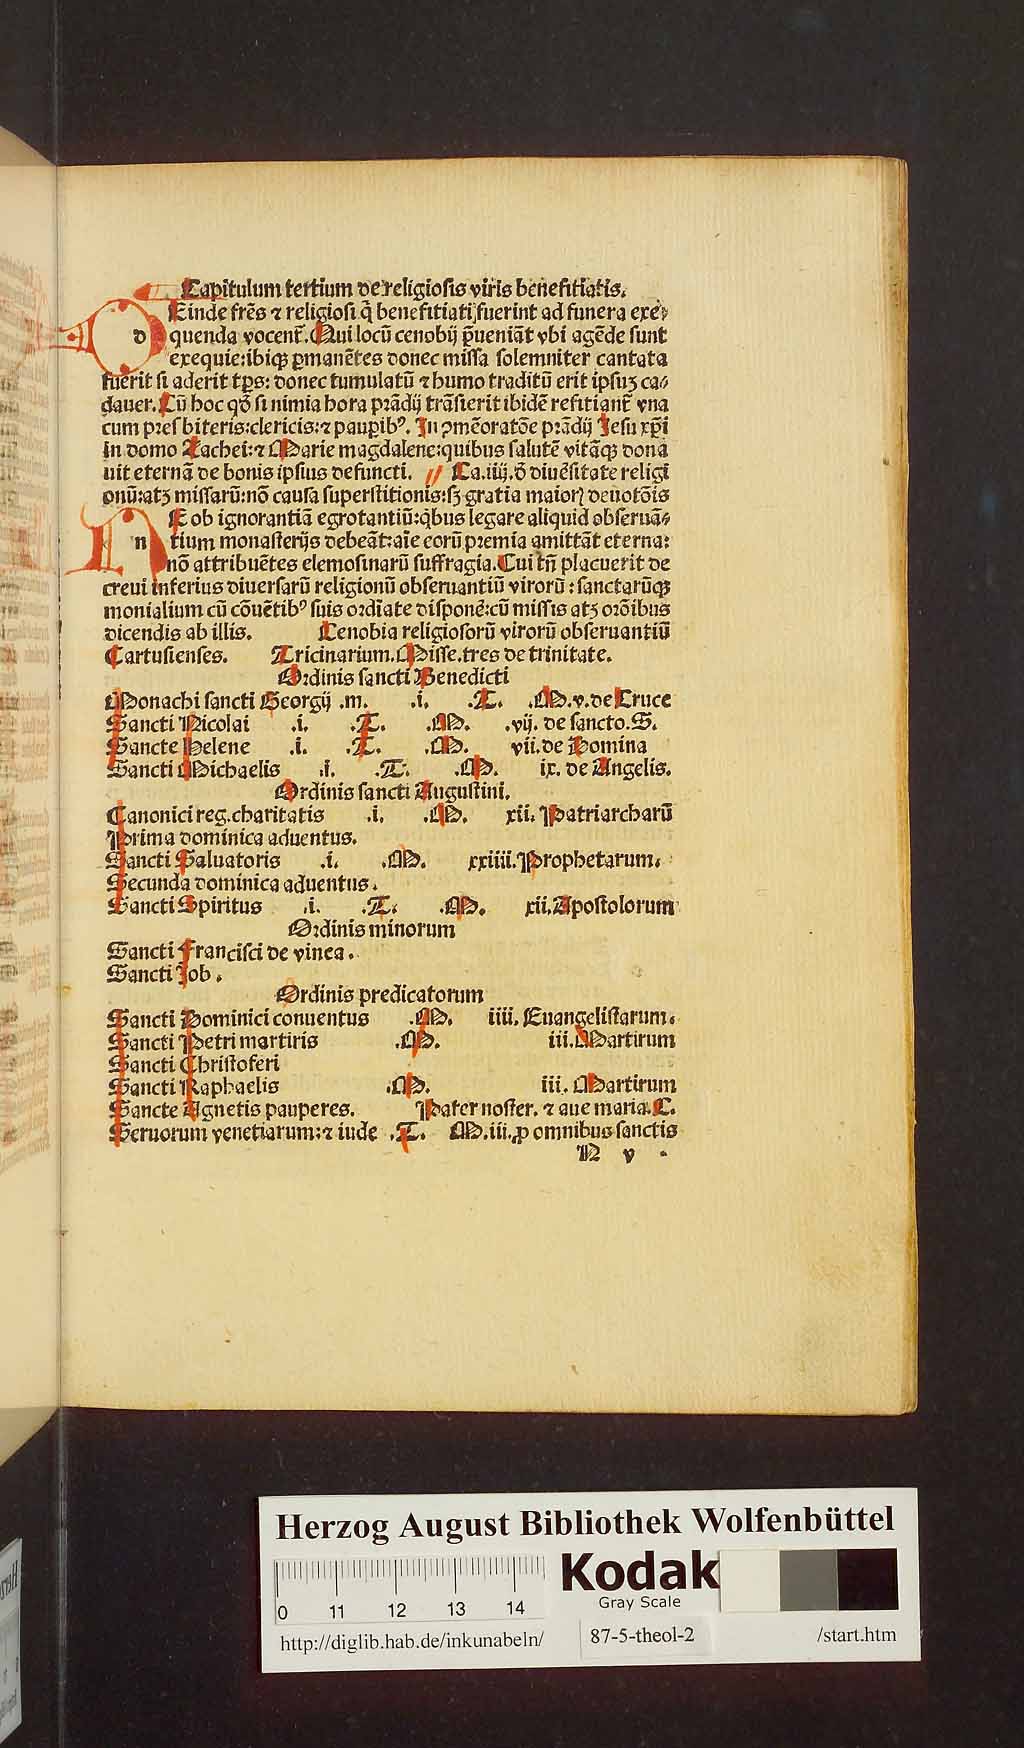 Capitulum tertium de religiosis viris benefitiatis.
dEinde frēs ⁊ religiosi q̄ benefitiati fuerint ad funera exe⸗
quenda vocent᷑. Qui locū cenobij ꝑueniāt vbi agēde sunt
exequie: ibiqꝫ ꝑmanētes donec missa solemniter cantata
fuerit si aderit tp̄s: donec tumulatū ⁊ humo traditū erit ipsuꝫ ca⸗
dauer. Cū hoc qd̄ si nimia hora prādij trāsierit ibidē refitiant᷑ vna
cum presbiteris: clericis: ⁊ pauꝑibꝰ. In ꝯmēoratōe prādij Jesu xp̄i
in domo Zachei: ⁊ Marie magdalene: quibus salutē vitāqꝫ dona
uit eternā de bonis ipsius defuncti. // Ca. iiij. d̄ diuēsitate religi
onū: atꝫ missarū: nō causa superstitionis: sꝫ gratia maioꝝ deuotōis
nE ob ignorantiā egrotantiū: qͥbus legare aliquid obseruā⸗
tium monasterijs debeāt: aīe eorū premia amittāt eterna:
nō attribuētes elemosinarū suffragia. Cui tn̄ placuerit de
creui inferius diuersarū religionū obseruantiū virorū: sanctarūqꝫ
monialium cū cōuētibꝰ suis ordīate disponē: cū missis atꝫ orōibus
dicendis ab illis. Cenobia religiosorū virorū obseruantiū
Cartusienses. Tricinarium. Misse. tres de trinitate.
Ordinis sancti Benedicti
Monachi sancti Georgij .m. .i. .T. .M. v. de Cruce
Sancti Nicolai .i. .T. .M. .vij. de sancto. S.
Sancte Helene .i. .T. .M. vii. de Domina
Sancti Michaelis .i. .T. .M. ix. de Angelis.
Ordinis sancti Augustini.
Canonici reg. charitatis .i. .M. xii. Patriarcharū
Prima dominica aduentus.
Sancti Saluatoris .i. .M. xxiiii. Prophetarum.
Secunda dominica aduentus.
Sancti Spiritus .i. .T. .M. xii. Apostolorum
Ordinis minorum
Sancti Francisci de vinea.
Sancti Job.
Ordinis predicatorum
Sancti Dominici conuentus .M. iiii. Euangelistarum.
Sancti Petri martiris .M. iii. Martirum
Sancti Christoferi
Sancti Raphaelis .M. iii. Martirum
Sancte Agnetis pauperes. Pater noster. ⁊ aue maria. C.
Seruorum venetiarum: ⁊ iude .T. M. iii. ꝓ omnibus sanctis
N v .
Herzog August Bibliothek Wolfenbüttel
Kodak
Gray Scale
0 11 12 13 14
http://diglib.hab.de/inkunabeln/ 87-5-theol-2 /start.htm